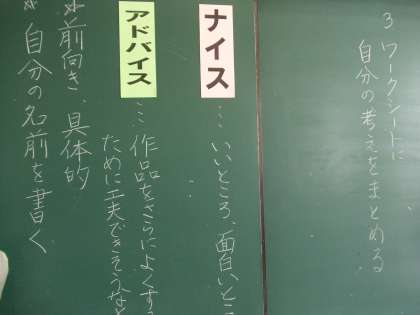 3 ワークシートに
自分の考えをまとめる
ナイス
…いいところ、面白いとこ
アドバイス
…作品をさらによくす
ために工夫できそうな
前向き、具体的
自分の名前を書く